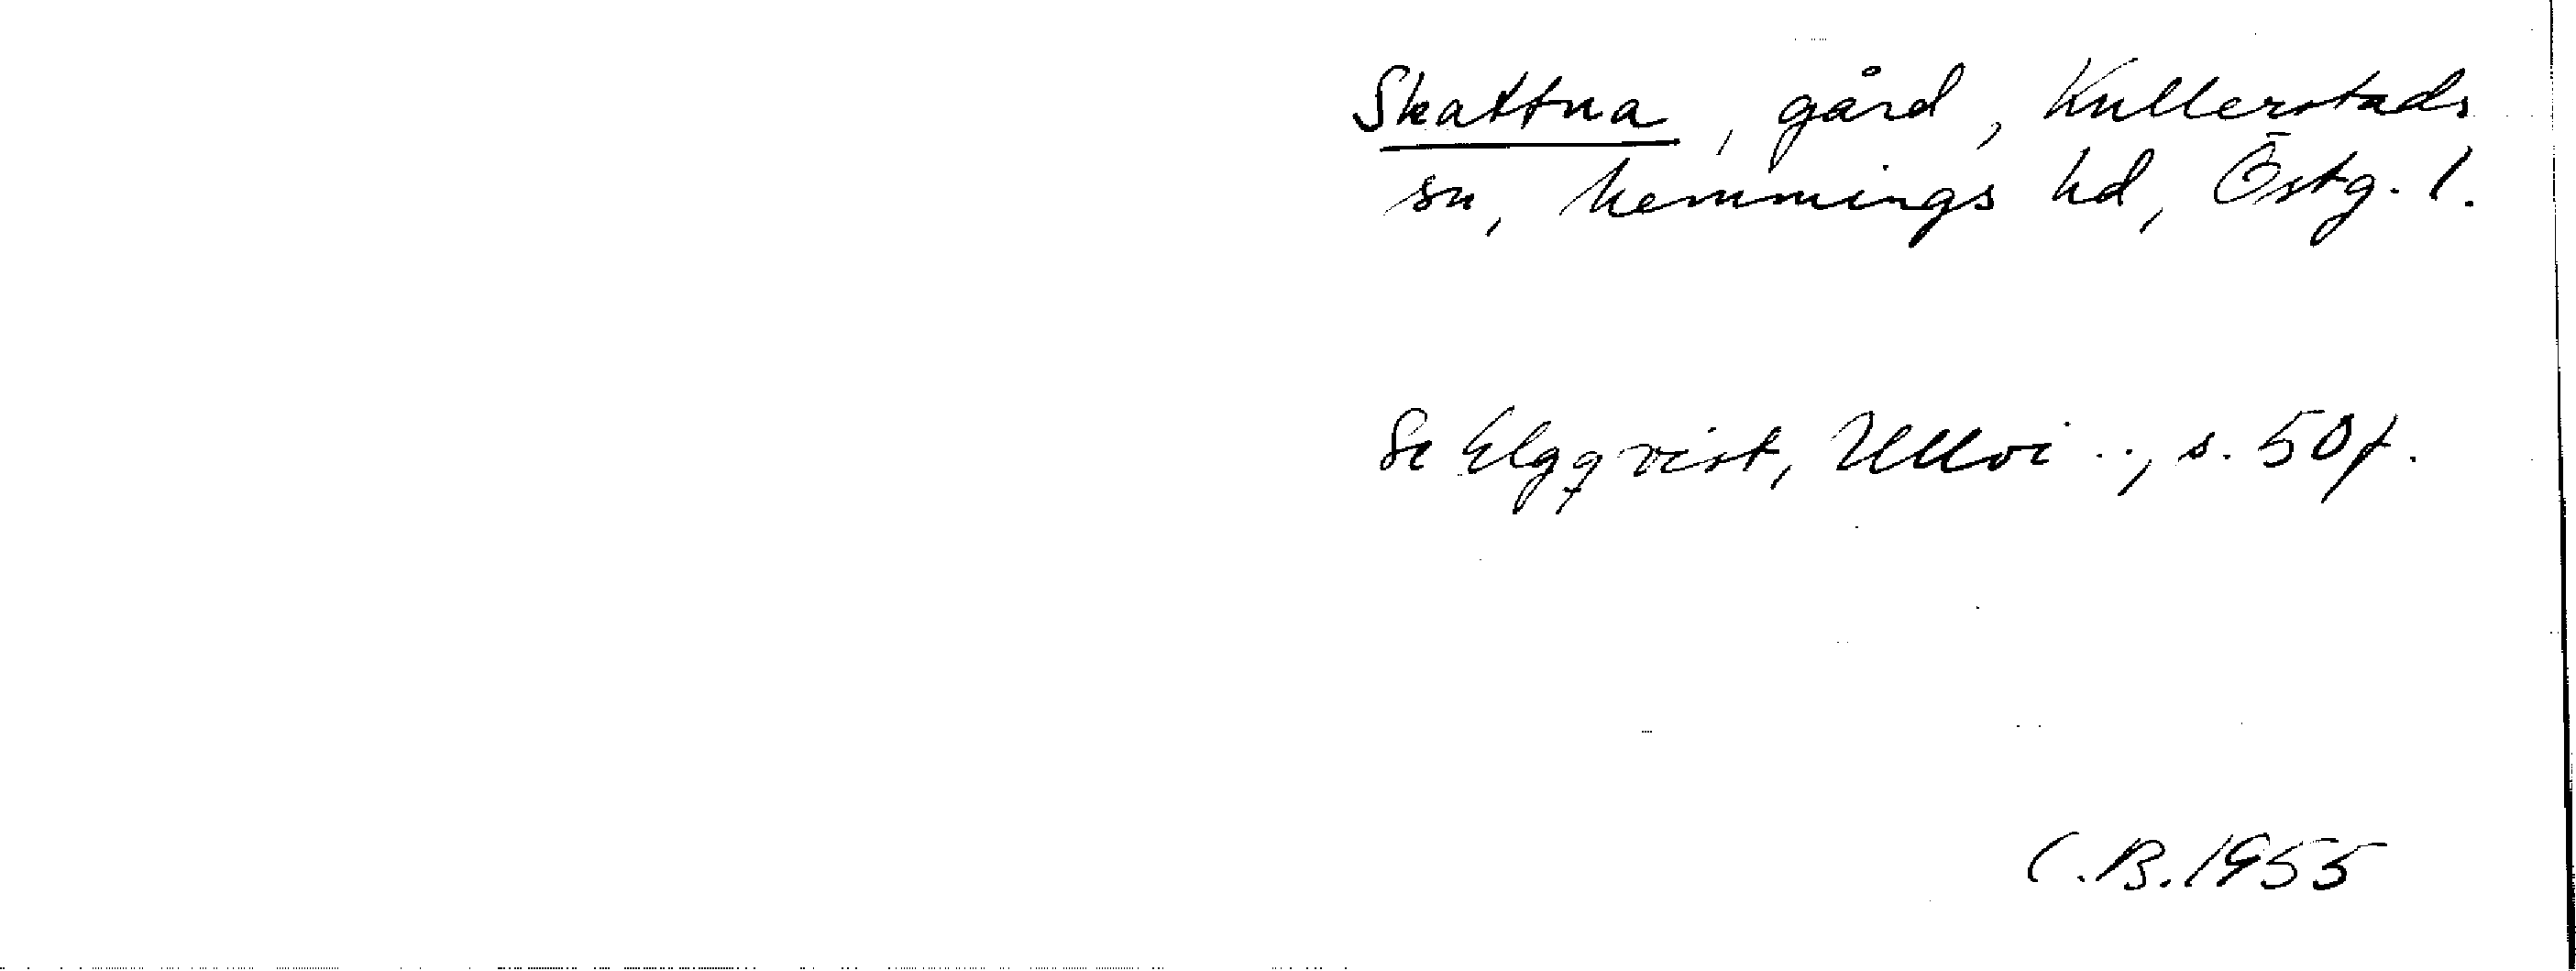 Skattna, gård, Kullerstads
sn, Memmings hd, Östg. l.
Se Elgqvist, Ullvi .., s. 50f.
C.B. 1955